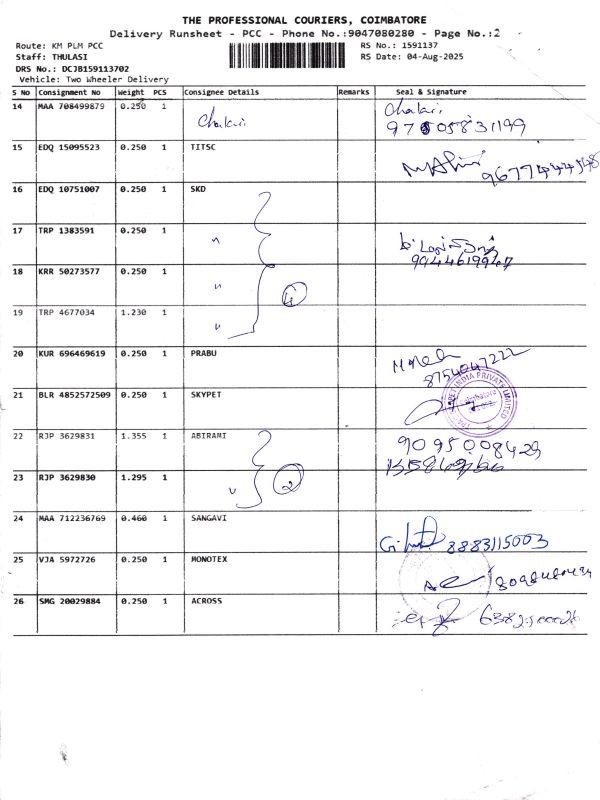 THE PROFESSIONAL COURIERS, COIMBATORE
Delivery Runsheet - PCC - Phone No.:9047080280 - Page No.:2
Route: KM PLM PCC RS No.: 1591137
Staff: THULASI RS Date: 04-Aug-2025
DRS No.: DCJB159113702
Vehicle: Two Wheeler Delivery
S No Consignment No Weight PCS Consignee Details Remarks Seal & Signature
14 MAA 708499879 0.250 1
15 EDQ 15095523 0.250 1 TITSC
16 EDQ 10751007 0.250 1 SKD
17 TRP 1383591 0.250 1 "
18 KRR 50273577 0.250 1 " 4
19 TRP 4677034 1.230 1 "
20 KUR 696469619 0.250 1 PRABU 8754047222
21 BLR 4852572509 0.250 1 SKYPET
22 RJP 3629831 1.355 1 ABIRAMI 9095008429
23 RJP 3629830 1.295 1 " 2
24 MAA 712236769 0.460 1 SANGAVI 8883115003
25 VJA 5972726 0.250 1 MONOTEX
26 SMG 20029884 0.250 1 ACROSS